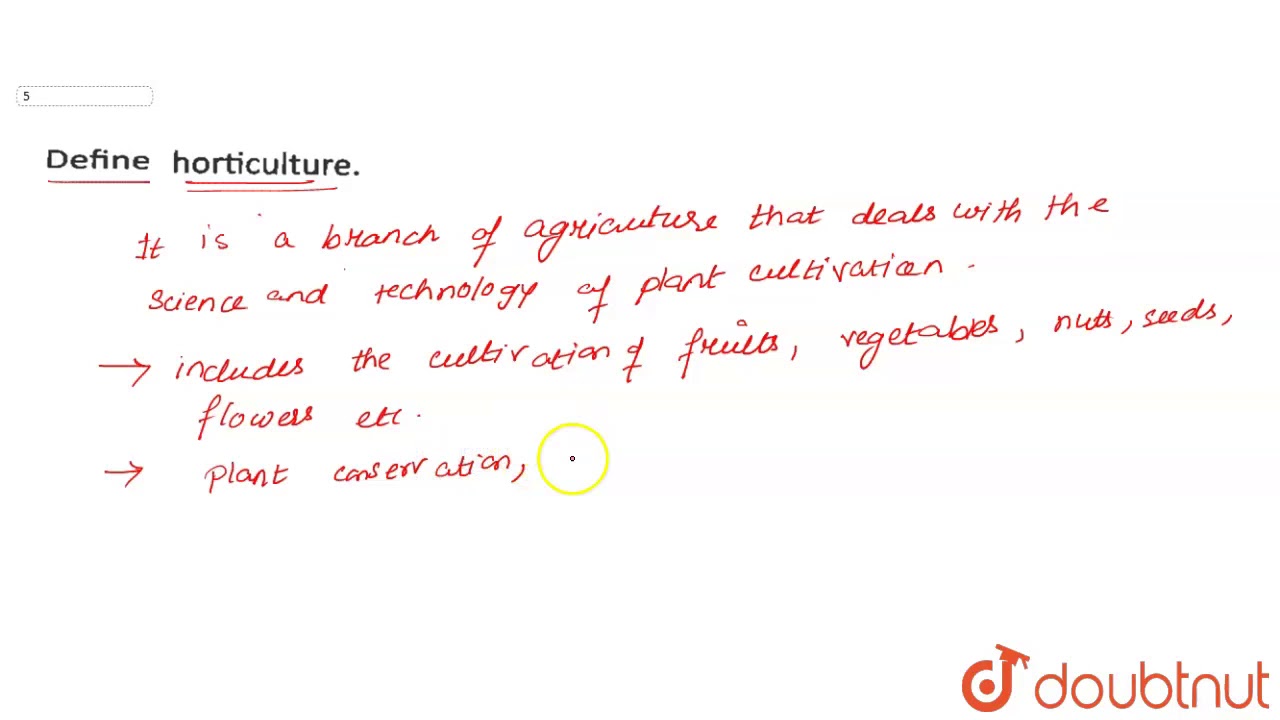 5
Define horticulture.
It is a branch of agricuture that deals with the
science and technology of plant cultivation.
→ includes the cultivation of fruits, vegetables, nuts, seeds,
flowers etc.
→ plant conservation,
doubtnut